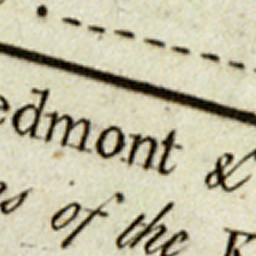 edmont &
es of the K